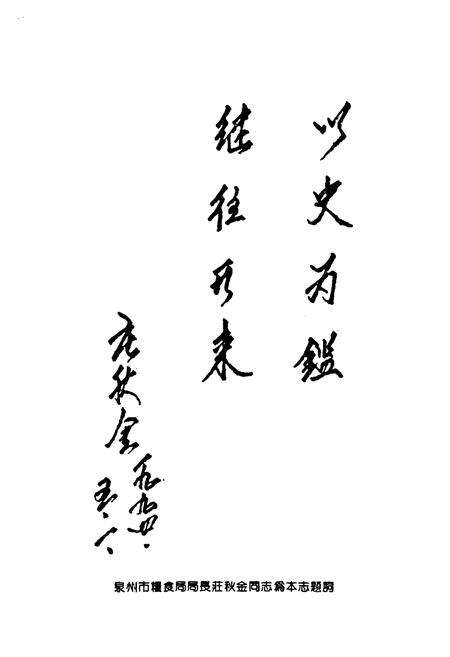 以史为鑑
继往开来
庄秋金
一九九四.
五.八
泉州市糧食局局長莊秋金同志爲本志題詞